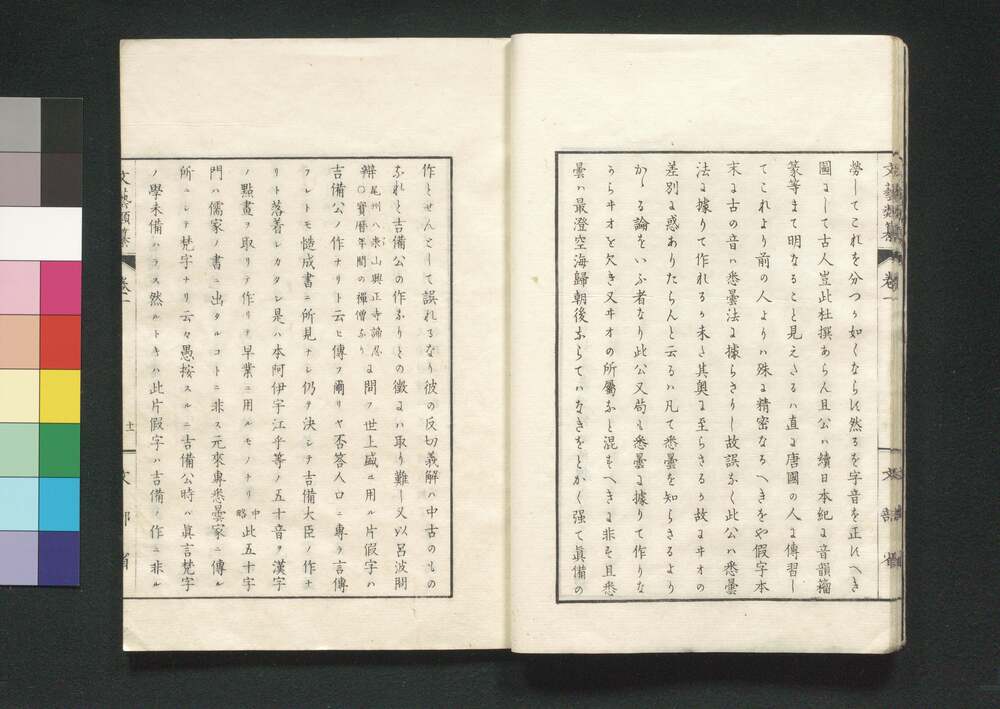 勞してこれを分つか如くならは然るを字音を正にへき
圖にして古人豈此杜撰あらん且公ハ續日本紀に音韻籀
篆等まて明なること見えさるハ直に唐國の人に傳習し
てこれより前の人よりハ殊に精密なるへきをや假字本
末に古の音ハ悉曇法に據らさりし故誤なく此公ハ悉曇
法に據りて作れるか未た其奥に至らさるか故にヰオの
差別に惑ありたらんと云るハ凡て悉曇を知らさるより
かゝる論をいふ者なり此公又苟も悉曇に據りて作りな
からヰオと欠き又ヰオの所屬なと混すへきに非す且悉
曇ハ最澄空海歸朝後ならてハなきをとかく强て眞備の
文藝類纂 卷一
文部省
作とせんとして誤れるなり彼の反切義解ハ中古のもの
なれと吉備公の作なりとの徴にハ取り難し又以呂波問
辨 尾州八事山興正寺諦忍 ○寶暦年間の禪僧なり に問フ世上盛ニ用ル片假字ハ
吉備公ノ作ナリト云ヒ傳フ爾リヤ否答人口ニ專ラ言傳
フレトモ慥成書ニ所見ナシ仍ヲ決シテ吉備大臣ノ作ナ
リト落着シカタシ是ハ本阿伊宇江乎等ノ五十音ヲ漢字
ノ點畫ヲ取リテ作リテ早業ニ用ルモノトリ 中略 此五十字
門ハ儒家ノ書ニ出タルコトニ非ス元來專悉曇家ニ傳ル
所ニシテ梵字ナリ云々愚按スルニ吉備公時ハ眞言梵字
ノ學未備ハラス然ルトキハ此片假字ハ吉備ノ作ニ非ル
文藝類纂 卷一
十一
文部省